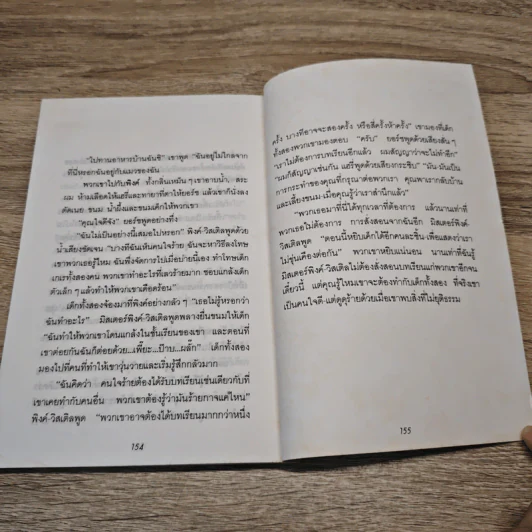 "ไปทานอาหารบ้านฉันซิ" เขาพูด "ฉันอยู่ไม่ไกลจาก
ที่นี่หรอกฉันอยู่กับแมวของฉัน
พวกเขาไปกับพิงค์ ทั้งกลิ่นเหม็นๆ เขาอาบน้ำ, สระ
ผม ห้ามเลือดให้แอรี่และทายาที่ตาให้ยอร์ช แล้วเขาก็นั่งลง
ตัดเนย ขนม น้ำผึ้งและขนมเค้กให้พวกเขา
"คุณใจดีจัง" ยอร์ชพูดอย่างทึ่ง
"ฉันไม่เป็นอย่างนี้เสมอไปหรอก" พิงค์-วิสเติลพูดด้วย
น้ำเสียงชัดเจน "บางทีฉันเห็นคนใจร้าย ฉันจะหาวิธีลงโทษ
เขาพวกเธอรู้ไหม ฉันพึ่งจัดการไปเมื่อบ่ายนี้เอง ทำโทษเด็ก
เกเรทั้งสองคน พวกเขาทำอะไรที่เลวร้ายมาก ชอบแกล้งเด็ก
ตัวเล็กๆ แล้วทำให้พวกเขาเดือดร้อน"
เด็กทั้งสองจ้องมาที่พิงค์อย่างกลัวๆ "เธอไม่รู้หรอกว่า
ฉันทำอะไร" มิสเตอร์พิงค์-วิสเติลพูดพลางยื่นขนมให้เด็ก
"ฉันทำให้พวกเขาโดนแกล้งในชั้นเรียนของเขา และตอนที่
เขาต่อยกันฉันก็ต่อยด้วย...เพี๊ยะ...ป๊าบ...ผลั๊ก" เด็กทั้งสอง
มองไปที่คนที่ทำให้เขาวุ่นวายและเริ่มรู้สึกกลัวมาก
"ฉันคิดว่า คนใจร้ายต้องได้รับบทเรียนเช่นเดียวกับที่
เขาเคยทำกับคนอื่น พวกเขาต้องรู้ว่ามันร้ายกาจแค่ไหน"
พิงค์-วิสเติลพูด "พวกเขาอาจต้องได้บทเรียนมากกว่าหนึ่ง
154
ครั้ง บางทีอาจจะสองครั้ง หรือสี่ครั้งห้าครั้ง" เขามองที่เด็ก
ทั้งสองพวกเขามองตอบ "ครับ" ยอร์ชพูดด้วยเสียงสั่นๆ
"เราไม่ต้องการบทเรียนอีกแล้ว ผมสัญญาว่าจะไม่ทำอีก"
"ผมก็สัญญาเช่นกัน แฮรี่พูดด้วยเสียงกระซิบ" "มัน-มันเป็น
การกระทำของคุณที่กรุณาต่อพวกเรา คุณพาเรากลับบ้าน
และเลี้ยงขนม เมื่อคุณรู้ว่าเราสำนึกแล้ว"
"พวกเธอมาที่นี่ได้ทุกเวลาที่ต้องการ แล้วนานเท่าที่
พวกเธอไม่ต้องการ การสั่งสอนจากฉันอีก มิสเตอร์พิงค์-
วิสเติลพูด "ตอนนี้หยิบเค้กได้อีกคนละชิ้น-เพื่อแสดงว่าเรา
ไม่ขุ่นเคืองต่อกัน" พวกเขาหยิบแน่นอน นานเท่าที่ฉันรู้
มิสเตอร์พิงค์-วิสเติลไม่ต้องสั่งสอนบทเรียนแก่พวกเขาอีกจน
เดี๋ยวนี้ แต่คุณรู้ไหมเขาจะต้องทำกับเด็กทั้งสอง ที่จริงเขา
เป็นคนใจดี-แต่ดุดูร้ายด้วยเมื่อเขาพบสิ่งที่ไม่ยุติธรรม
155